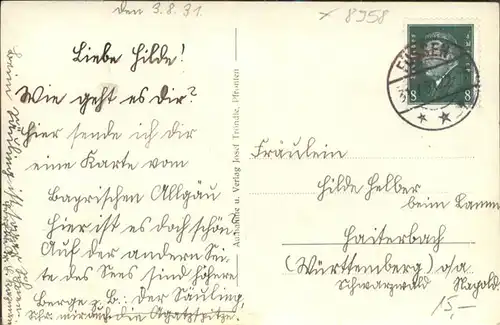 den 3.8.31.
x 8958
Liebe Hilde!
Wie geht es Dir?
Hier sende ich Dir
eine Karte vom
Bayrischen Allgäu
hier ist es doch schön.
Auf der andern Sei-
te des Sees sind höhere
Berge z. B. der Säuling,
die Agatzspitze.
Aufnahme u. Verlag Josef Trönдle, Pfronten
FÜSSEN
8 8
Fräulein
Hilde Helber
beim Lamm
Haiterbach
(Württemberg) o/a
Schwarzwald Nagold.
15,-